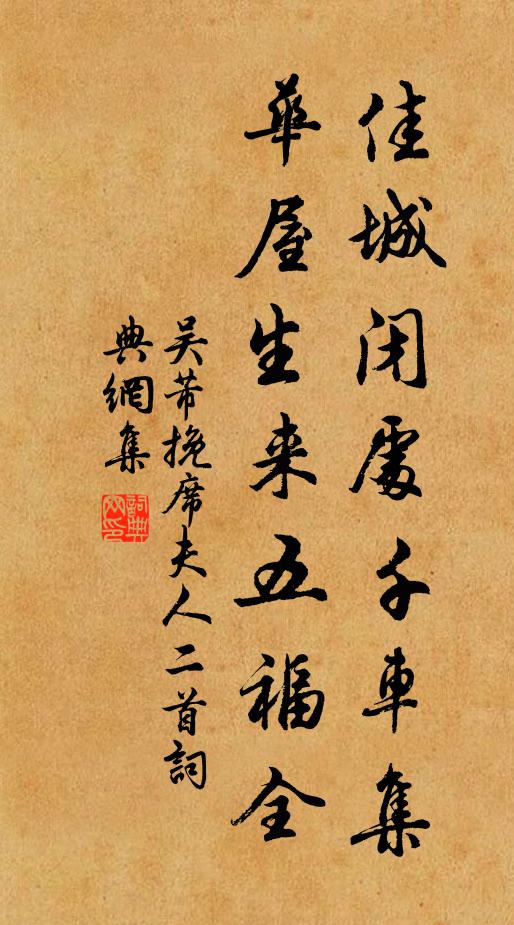 佳城闭處千車集
華屋生来五福全
吴芾挽席夫人二首詞
典網集
詞典
网印